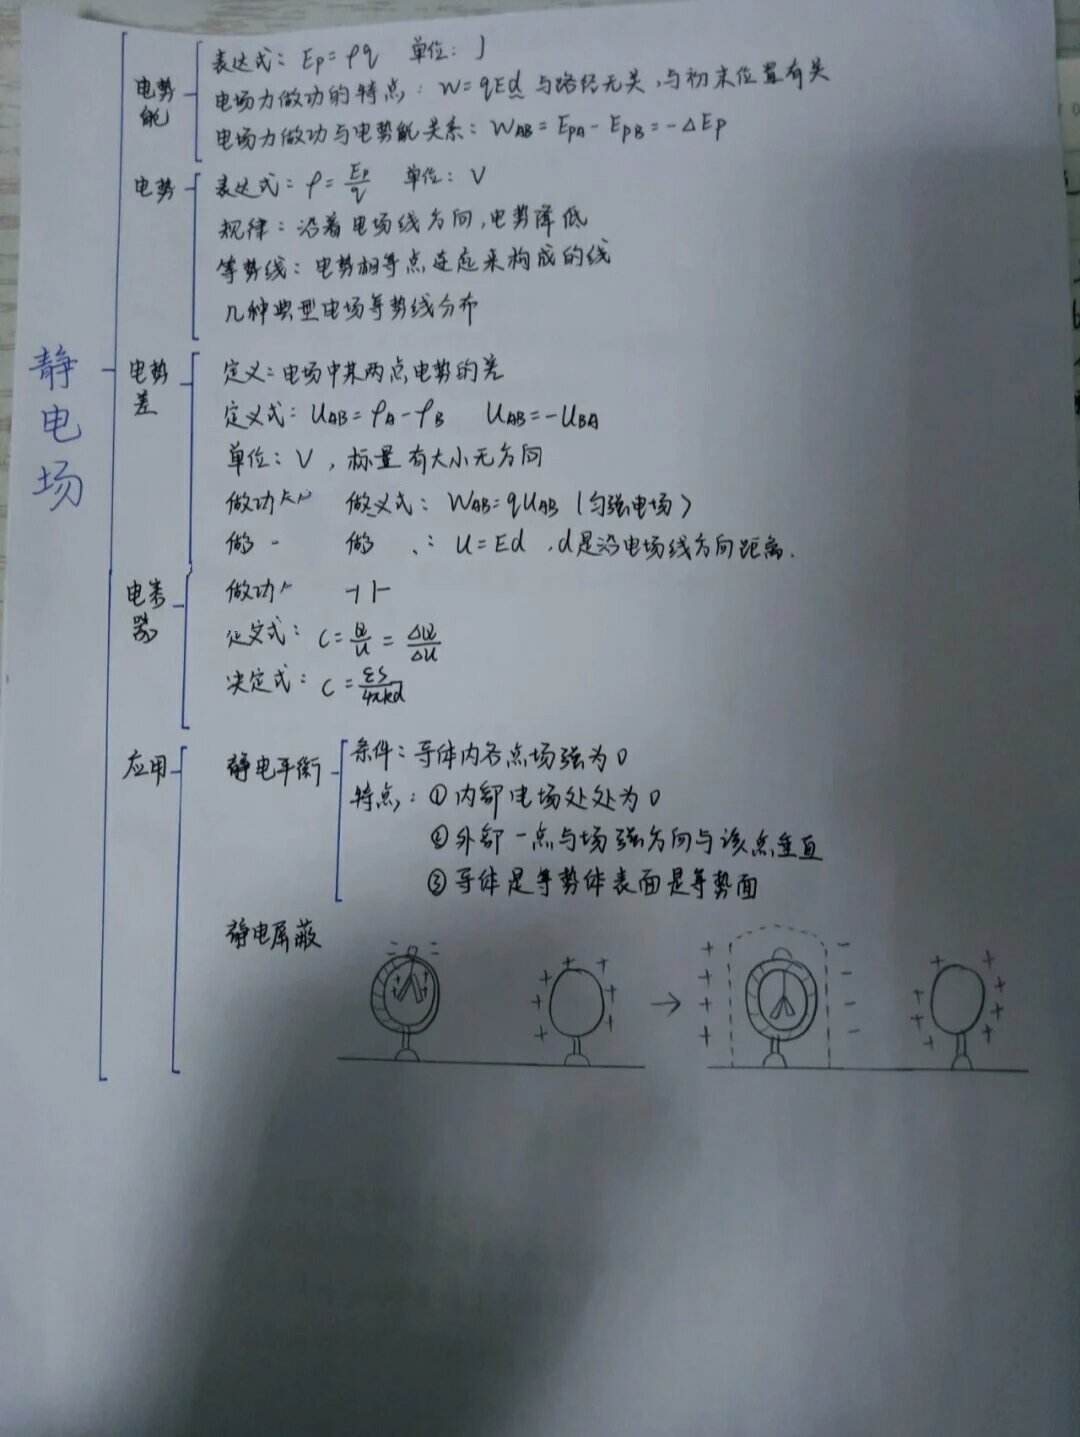 静电场
电势能
表达式：Ep=φq 单位：J
电场力做功的特点：W=qEd 与路径无关，与初末位置有关
电场力做功与电势能关系：WAB=EPA-EPB=-ΔEP
电势
表达式：φ=Ep/q 单位：V
规律：沿着电场线方向，电势降低
等势线：电势相等点连起来构成的线
几种典型电场等势线分布
电势差
定义：电场中某两点电势的差
定义式：UAB=φA-φB UAB=-UBA
单位：V，标量有大小无方向
做功 做义式：WAB=qUAB（匀强电场）
做 做 ：U=Ed，d是沿电场线方向距离.
电
做功
定义式：C=Q/U=ΔQ/ΔU
决定式：C=εS/4πkd
应用
静电平衡
条件：导体内各点场强为0
特点：①内部电场处处为0
②外部一点与场强方向与该点垂直
③导体是等势体表面是等势面
静电屏蔽